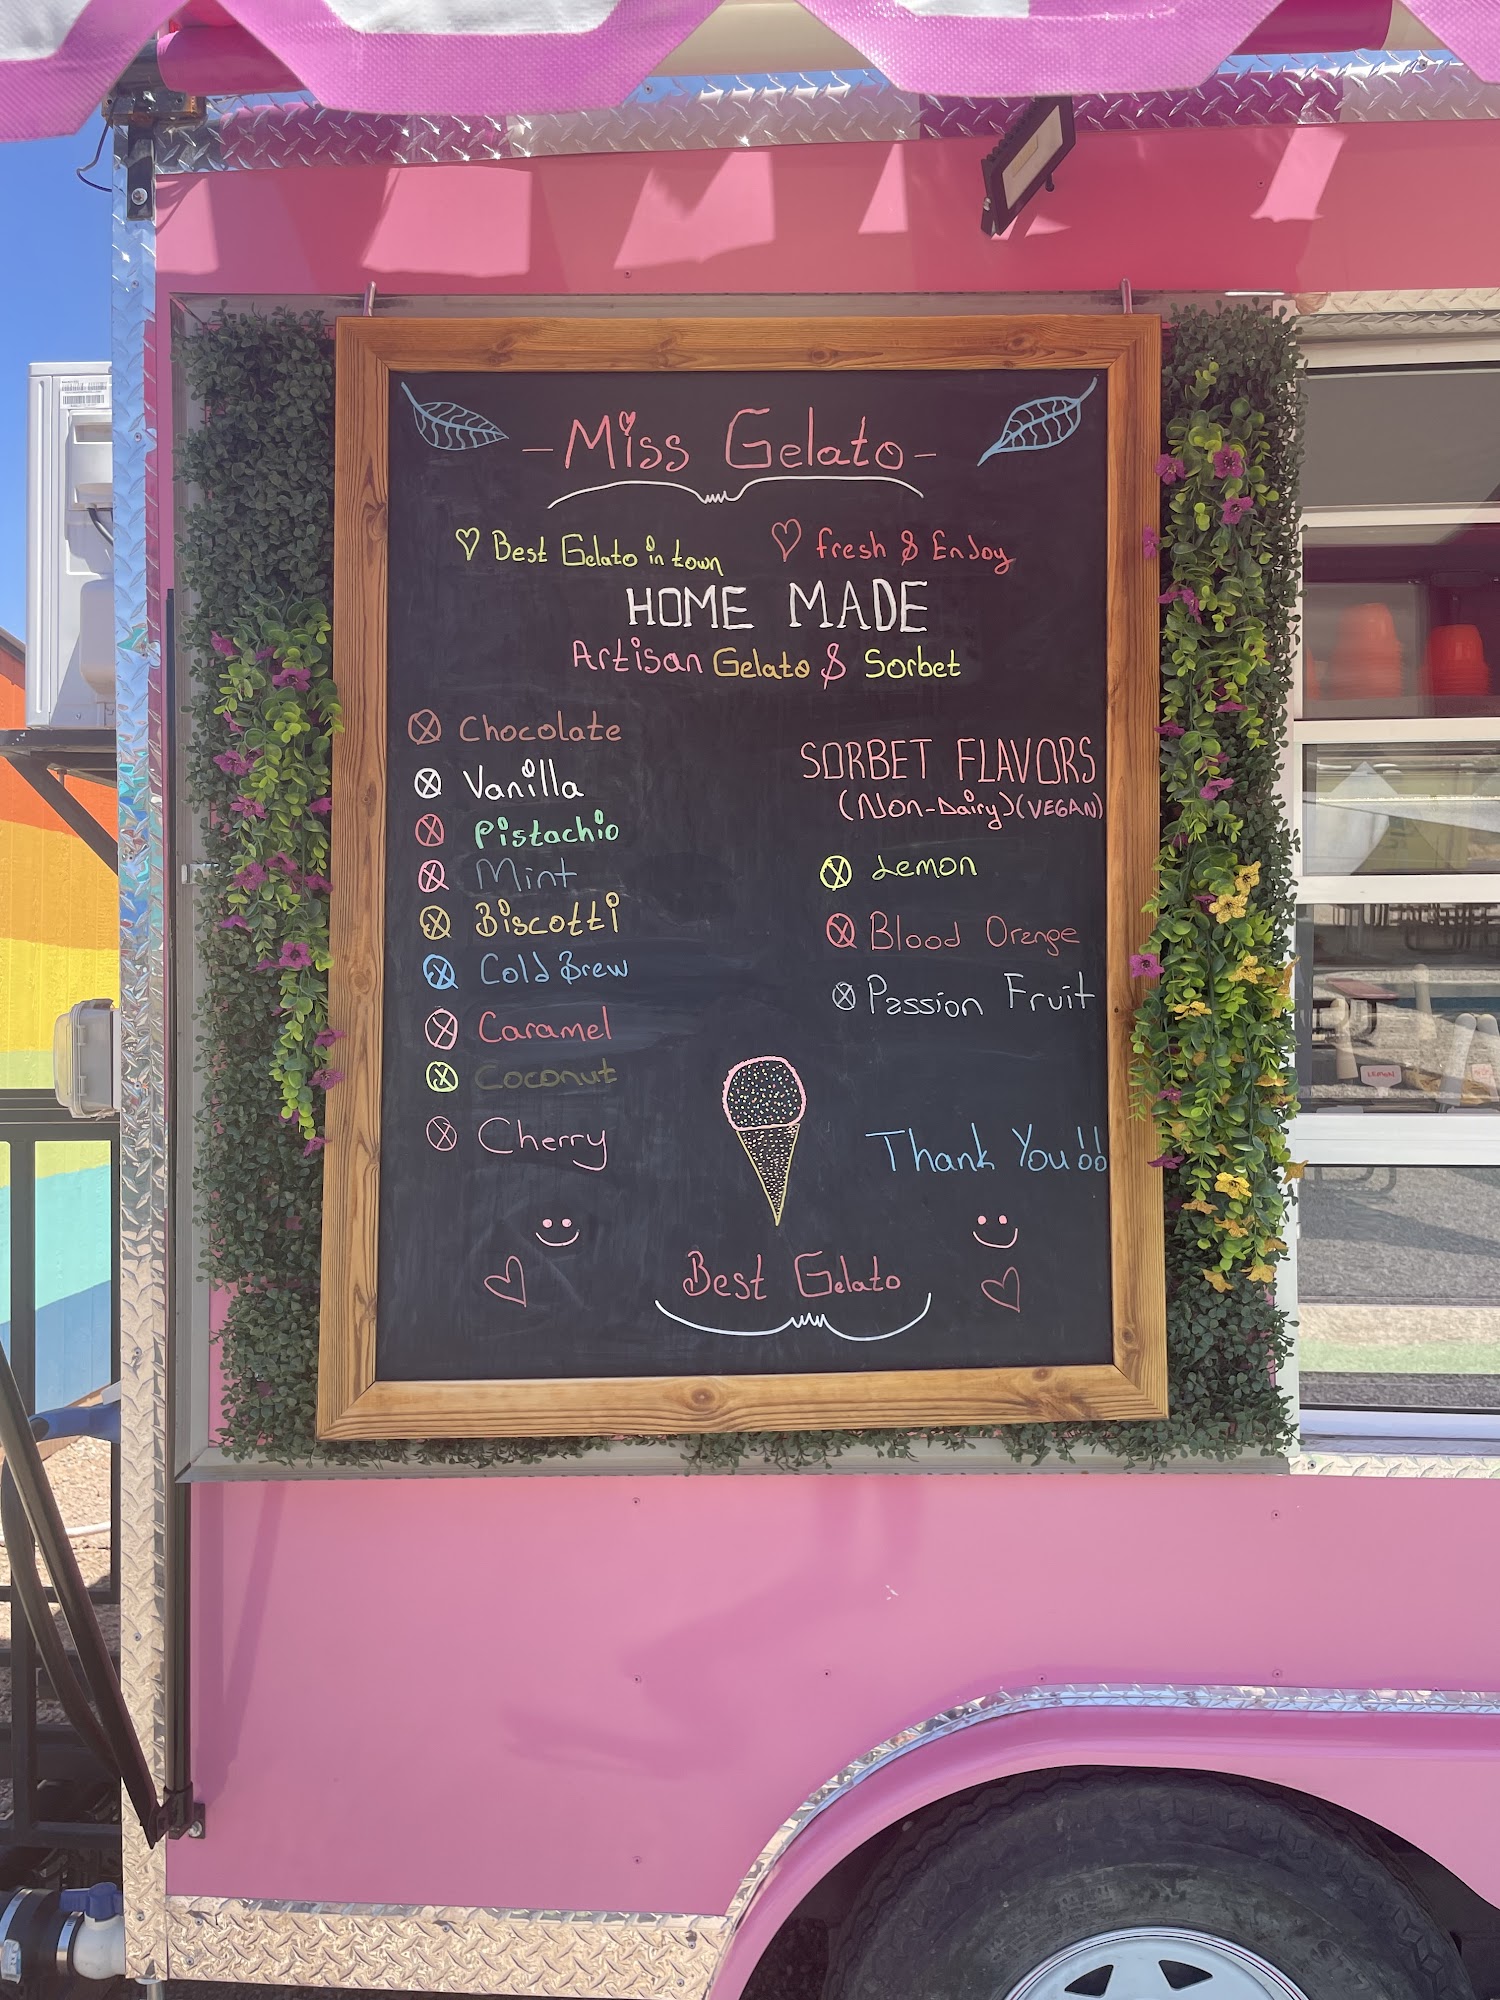 -Miss Gelato-
Best Gelato in town
fresh & EnJoy
HOME MADE
Artisan Gelato & Sorbet
Chocolate
Vanilla
Pistachio
Mint
Biscotti
Cold Brew
Caramel
Coconut
Cherry
SORBET FLAVORS
(Non-Dairy)(VEGAN)
Lemon
Blood Orange
Passion Fruit
Thank You!!
Best Gelato
LEMON